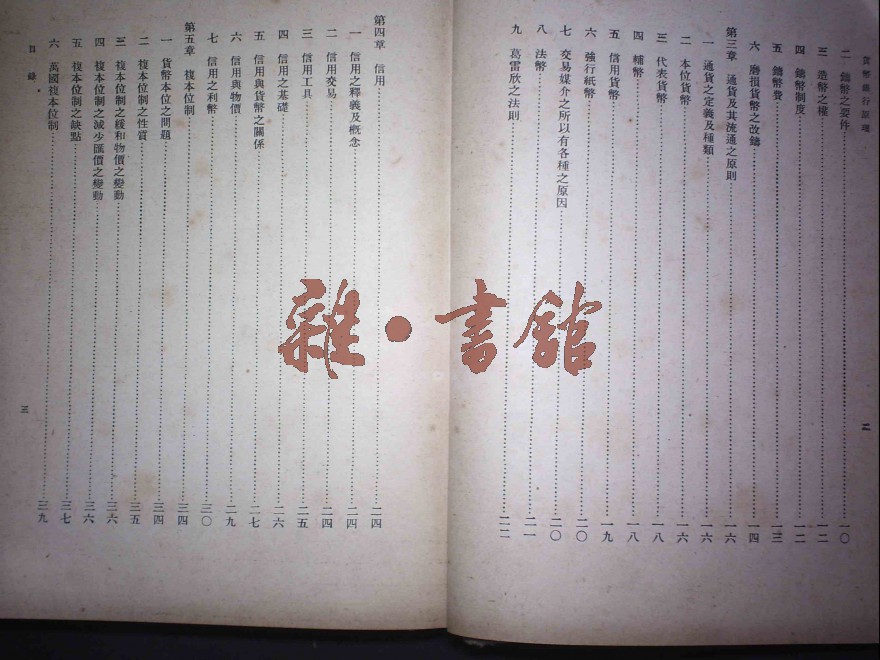 貨幣銀行原理
二　鑄幣之要件……一〇
三　造幣之權……一二
四　鑄幣制度……一二
五　鑄幣費……一三
六　磨損貨幣之改鑄……一四
第三章　通貨及其流通之原則……一六
一　通貨之定義及種類……一六
二　本位貨幣……一六
三　代表貨幣……一八
四　輔幣……一八
五　信用貨幣……一九
六　強行紙幣……二〇
七　交易媒介之所以有各種之原因……二〇
八　法幣……二一
九　葛雷欣之法則……二二
二
第四章　信用……二四
一　信用之釋義及概念……二四
二　信用交易……二四
三　信用工具……二五
四　信用之基礎……二六
五　信用與貨幣之關係……二七
六　信用與物價……二九
七　信用之利幣……三〇
第五章　複本位制……三四
一　貨幣本位之問題……三四
二　複本位制之性質……三五
三　複本位制之緩和物價之變動……三六
四　複本位制之減少匯價之變動……三六
五　複本位制之缺點……三七
六　萬國複本位制……三九
目錄
三
雜·書館